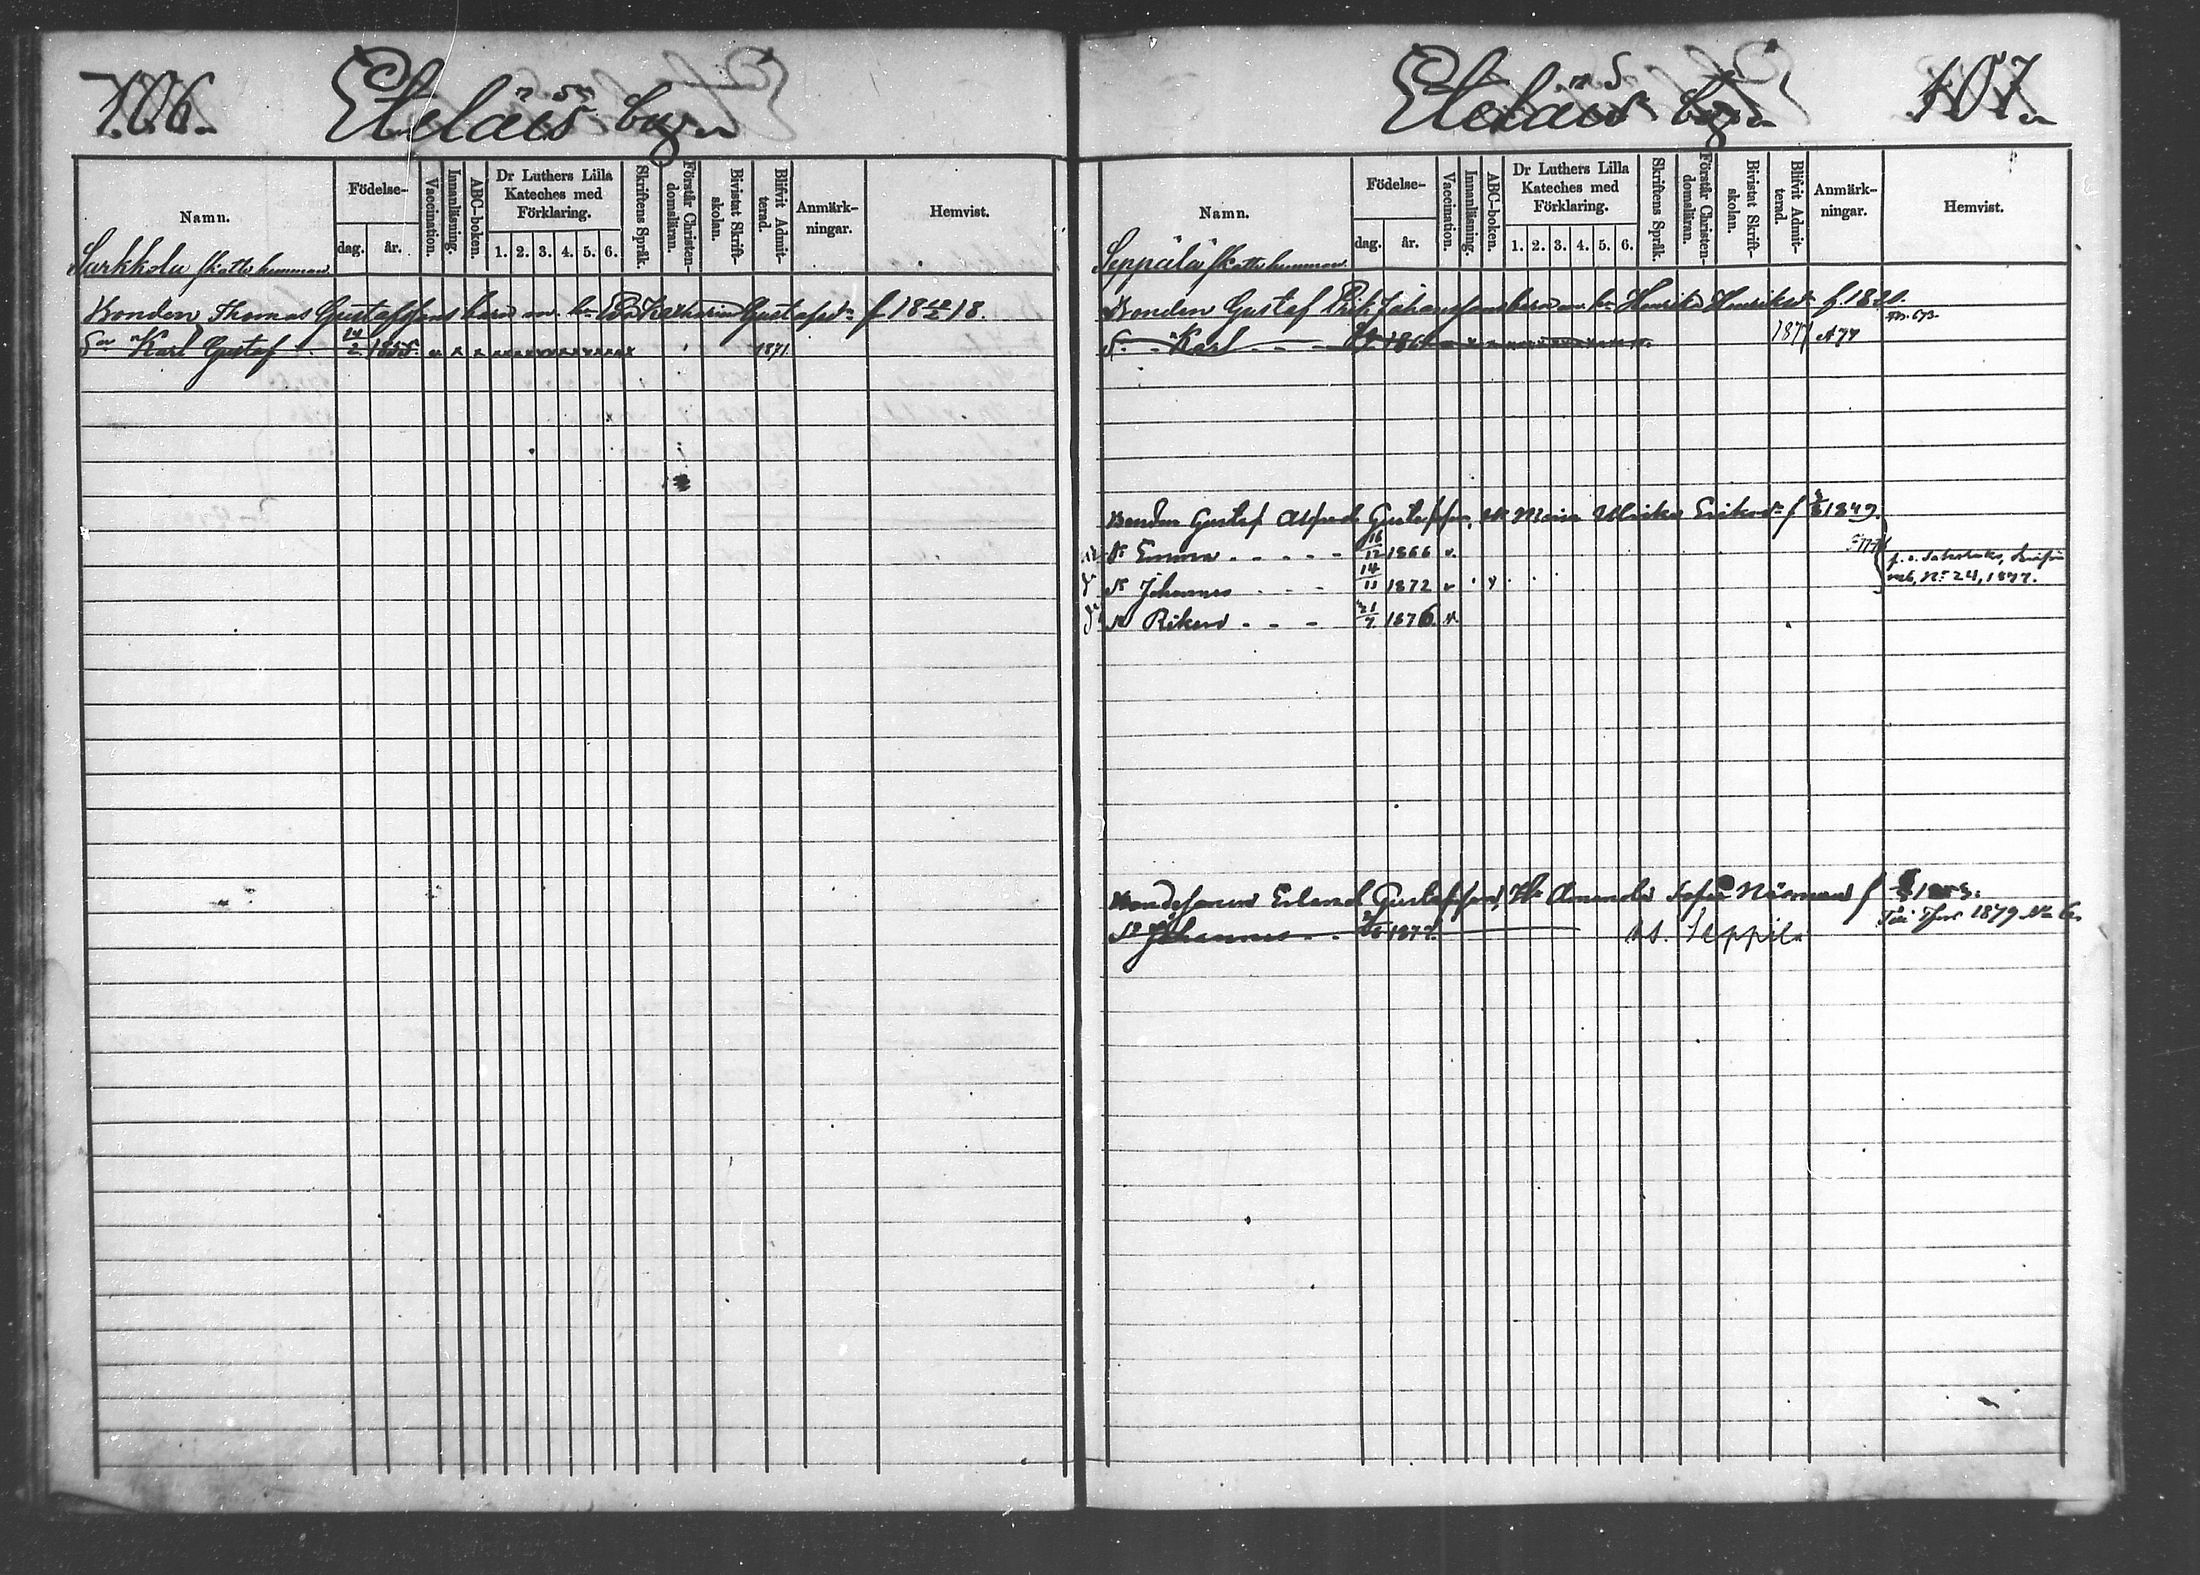 106.
Eteläis by
Namn.
Födelse-
dag.
år.
Vaccination.
Innanläsning.
ABC-boken.
Dr Luthers Lilla
Kateches med
Förklaring.
1. 2. 3. 4. 5. 6.
Skriftens Språk.
Förstår Christen-
domsläran.
Bivistat Skrift-
skolan.
Blifvit Admit-
terad.
Anmärk-
ningar.
Hemvist.
Sarkkola skatte hemman
Bonden Thomas Gustafssons barn m. h. Katharina Gustafsdr f 18 18.
Sn Karl Gustaf 14/2 1855. 1871
107.
Eteläis by
Namn.
Födelse-
dag.
år.
Vaccination.
Innanläsning.
ABC-boken.
Dr Luthers Lilla
Kateches med
Förklaring.
1. 2. 3. 4. 5. 6.
Skriftens Språk.
Förstår Christen-
domsläran.
Bivistat Skrift-
skolan.
Blifvit Admit-
terad.
Anmärk-
ningar.
Hemvist.
Seppälä skatte hemman
Bonden Gustaf Erik Johanssons barn m. h. Henrika Henriksdr f. 1821.
S. Karl 1877
Bonden Gustaf Alfred Gustafsson, H. Maria Ulrika Eriksdr f 1849.
Dr Emma 16/12 1866
Sn Johannes 14/11 1872 No 24, 1877.
Sn Rikard 21/7 1876
Bondesonen Erland Gustafsson, H. Amanda Sofia Nieman f
Sn Johannes 1877. Seppilä 1879 No 6.